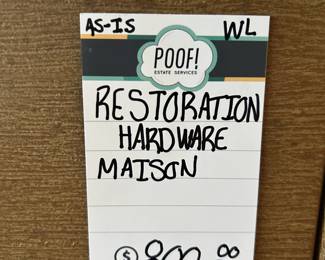 AS-IS WL
POOF!
ESTATE SERVICES
RESTORATION
HARDWARE
MAISON
$ 800.00